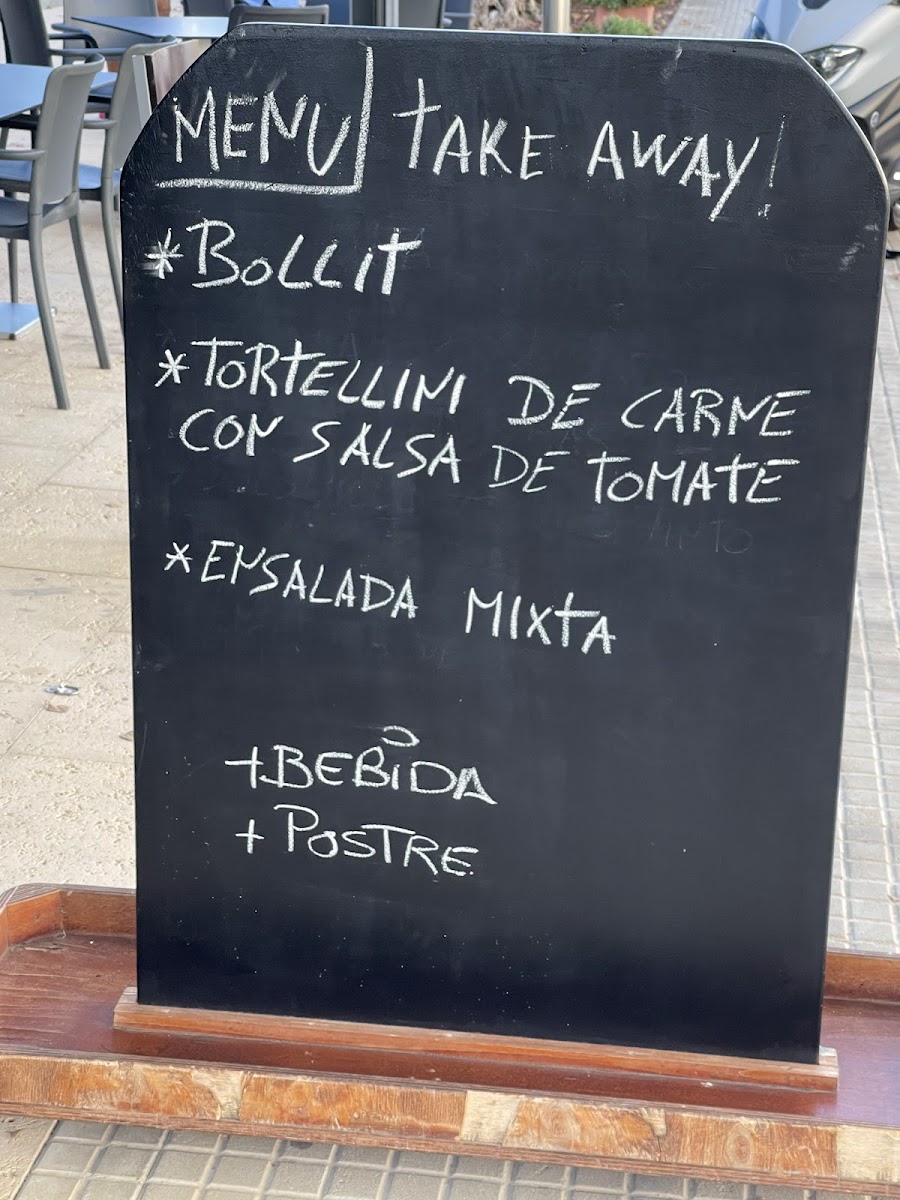 MENU TAKE AWAY!
*BOLLIT
*TORTELLINI DE CARNE
CON SALSA DE TOMATE
*ENSALADA MIXTA
+BEBIDA
+POSTRE